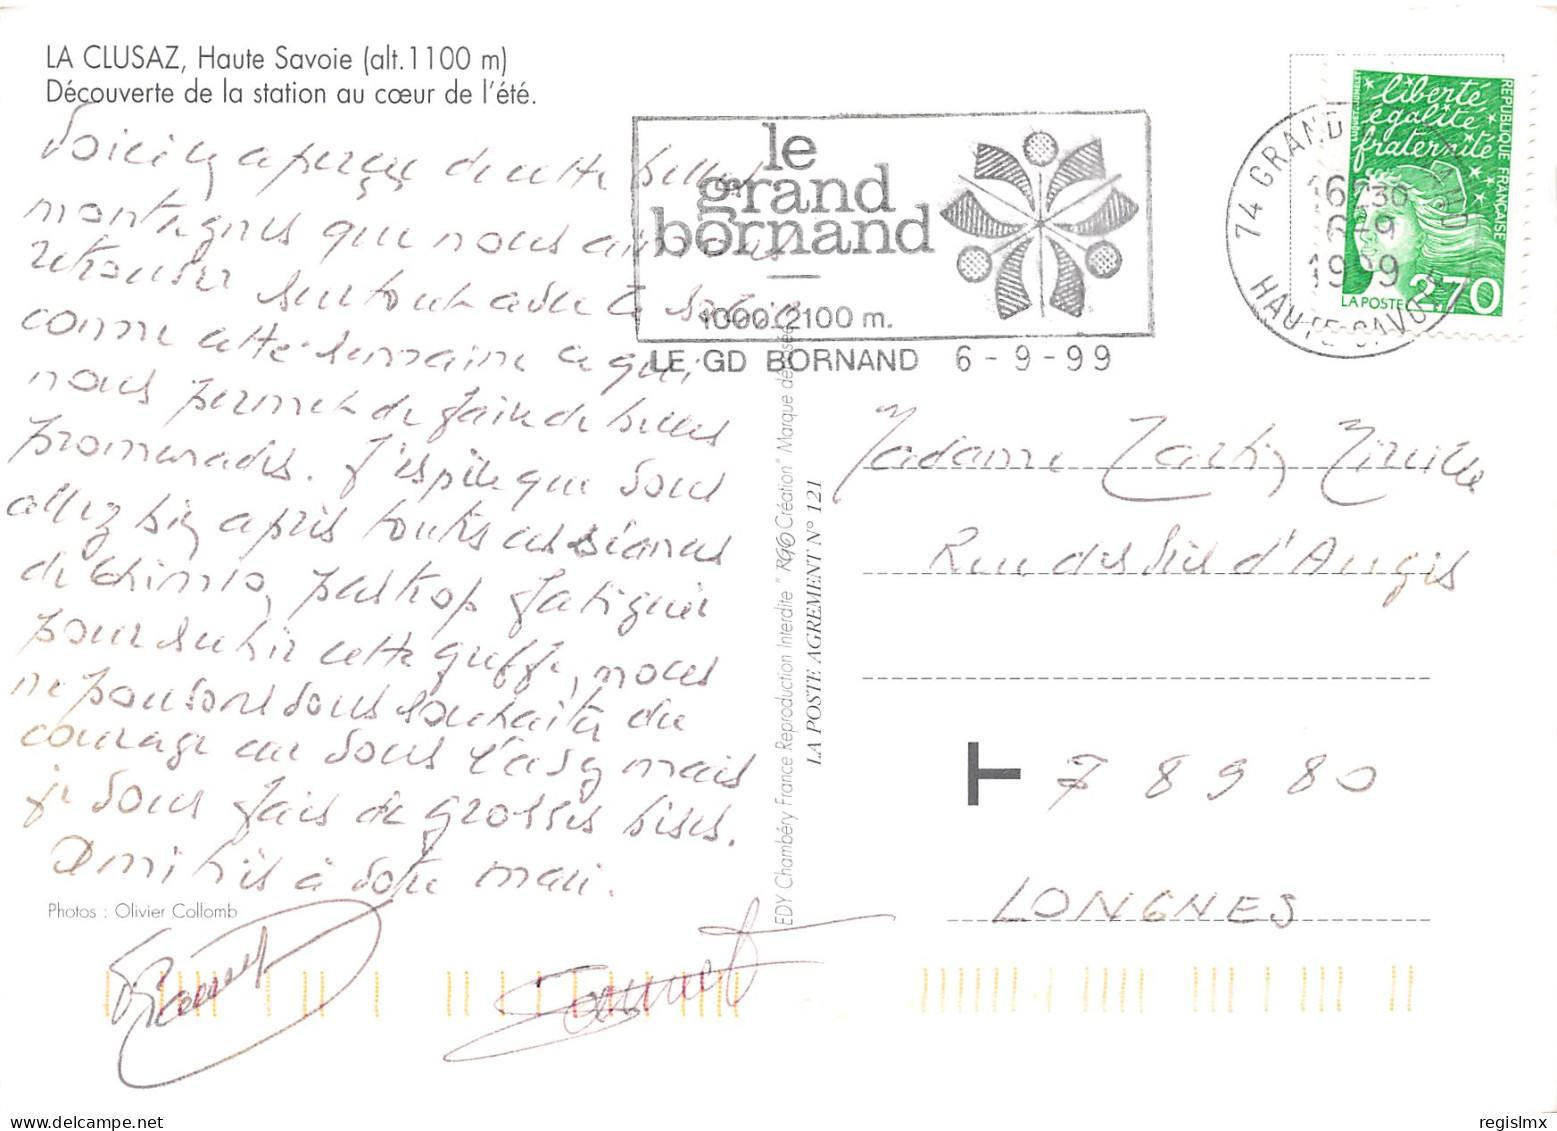 LA CLUSAZ, Haute Savoie (alt.1100 m)
Découverte de la station au cœur de l'été.
Voici un aperçu de cette belles
montagnes que nous aimons
retrouver surtout avec le soleil
comme cette semaine ce qui
nous permet de faire de belles
promenades. J'espère que vous
allez bien après toutes ces séances
de chimio, pas trop fatiguée
pour subir cette greffe, nous
ne pouvons vous souhaiter du
courage car vous l'avez mais
je vous fais de grosses bises.
Amitiés à votre mari.
Photos : Olivier Collomb
le
grand
bornand
1000/2100 m.
LE GD BORNAND 6-9-99
74 GRAND BORNAND
16H30
6-9
1999
HAUTE-SAVOIE
liberté
égalité
fraternité
REPUBLIQUE FRANÇAISE
LA POSTE 2,70
EDY Chambéry France Reproduction Interdite " RGO Création" Marque déposée
LA POSTE AGREMENT N° 121
Madame Mireille
Rue des d'Augis
T 78980
LONGNES
regislmx